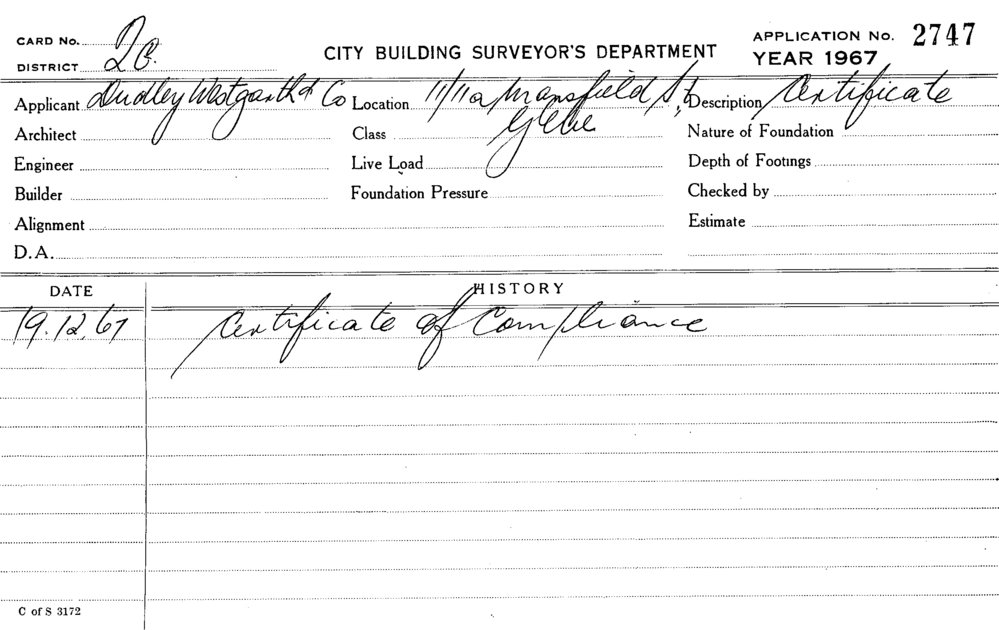 CARD No.
DISTRICT
CITY BUILDING SURVEYOR'S DEPARTMENT
APPLICATION No. 2747
YEAR 1967
Applicant Dudley Westgarth & Co Location 11/11a Mansfield St, Description Certificate
Glebe
Architect Class Nature of Foundation
Engineer Live Load Depth of Footings
Builder Foundation Pressure Checked by
Alignment Estimate
D.A.
DATE HISTORY
19.12.67 Certificate of Compliance
C of S 3172